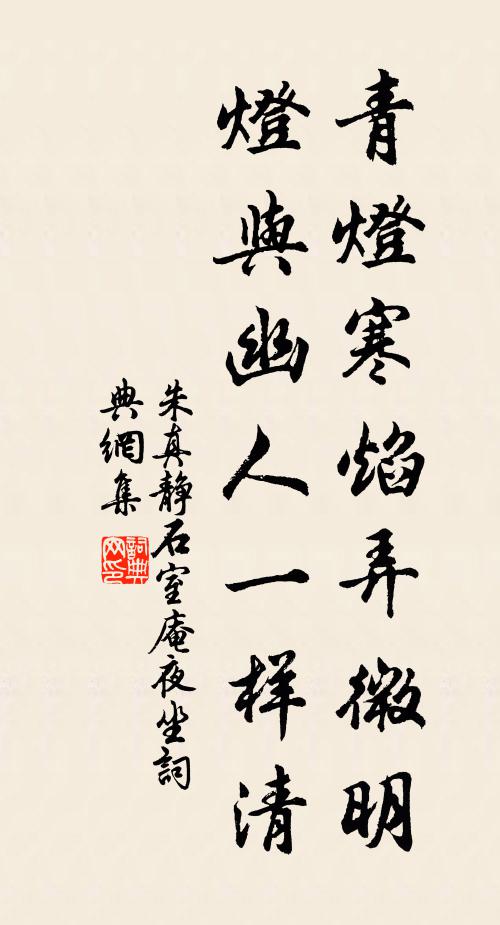 青燈寒焰弄微明
燈與幽人一样清
朱真静石室庵夜坐詞
典網集
詞典网印